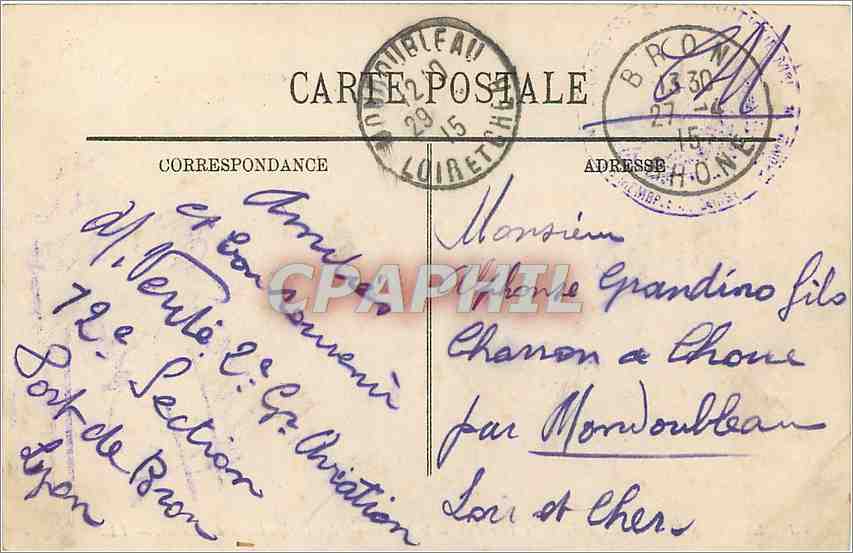 CARTE POSTALE
MONDOUBLEAU
29
15
LOIR ET CHER
BRON
13 30
27
15
RHONE
CORRESPONDANCE
ADRESSE
Amitiés
et bon souvenir
2e Gr. Aviation
72e Section
Fort de Bron
Lyon
CPAPHIL
Monsieur
Alphonse Grandino fils
Charron a Choue
par Mondoubleau
Loir et Cher